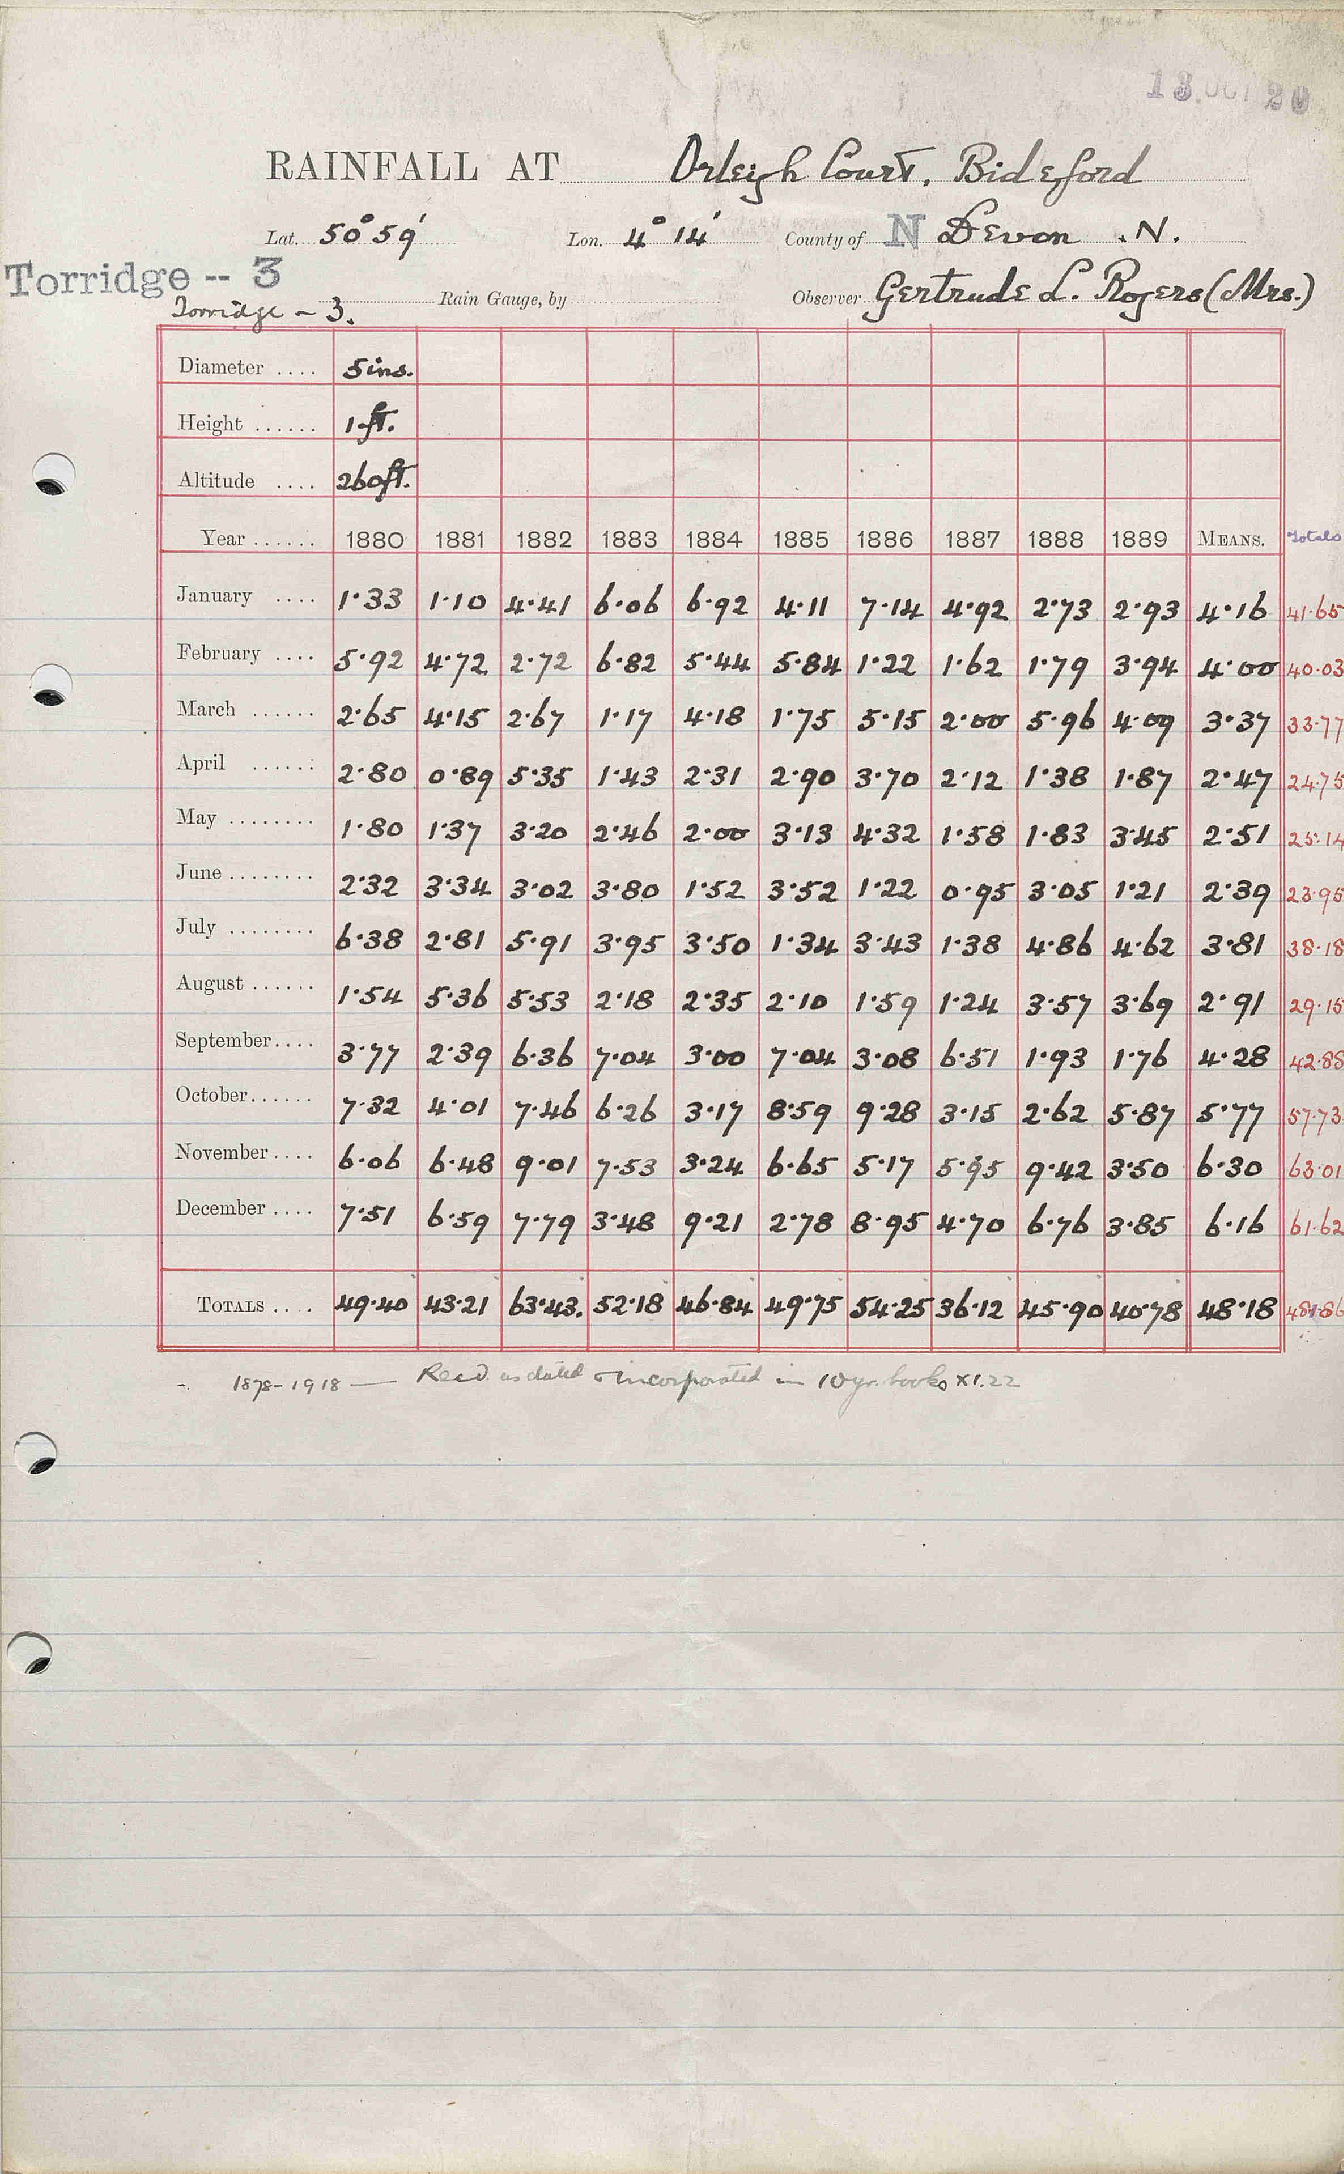 13 OCT 20
RAINFALL AT Orleigh Court, Bideford
Lat. 50° 59' Lon. 4° 14' County of N Devon .N.
Torridge -- 3
Torridge - 3. Rain Gauge, by Observer Gertrude L. Rogers (Mrs.)
Diameter .... 5 ins.
Height ...... 1 ft.
Altitude .... 260 ft.
Year ...... 1880 1881 1882 1883 1884 1885 1886 1887 1888 1889 MEANS. Totals
January .... 1.33 1.10 4.41 6.06 6.92 4.11 7.14 4.92 2.73 2.93 4.16 41.65
February .... 5.92 4.72 2.72 6.82 5.44 5.84 1.22 1.62 1.79 3.94 4.00 40.03
March ...... 2.65 4.15 2.67 1.17 4.18 1.75 5.15 2.00 5.96 4.09 3.37 33.77
April ...... 2.80 0.89 5.35 1.43 2.31 2.90 3.70 2.12 1.38 1.87 2.47 24.75
May ........ 1.80 1.37 3.20 2.46 2.00 3.13 4.32 1.58 1.83 3.45 2.51 25.14
June ........ 2.32 3.34 3.02 3.80 1.52 3.52 1.22 0.95 3.05 1.21 2.39 23.95
July ........ 6.38 2.81 5.91 3.95 3.50 1.34 3.43 1.38 4.86 4.62 3.81 38.18
August ...... 1.54 5.36 5.53 2.18 2.35 2.10 1.59 1.24 3.57 3.69 2.91 29.15
September .... 3.77 2.39 6.36 7.04 3.00 7.04 3.08 6.51 1.93 1.76 4.28 42.88
October ...... 7.32 4.01 7.46 6.26 3.17 8.59 9.28 3.15 2.62 5.87 5.77 57.73
November .... 6.06 6.48 9.01 7.53 3.24 6.65 5.17 5.95 9.42 3.50 6.30 63.01
December .... 7.51 6.59 7.79 3.48 9.21 2.78 8.95 4.70 6.76 3.85 6.16 61.62
TOTALS .... 49.40 43.21 63.43. 52.18 46.84 49.75 54.25 36.12 45.90 40.78 48.18 481.86
1878-1918 — Recd. as dated & incorporated in 10 yr. books X1.22